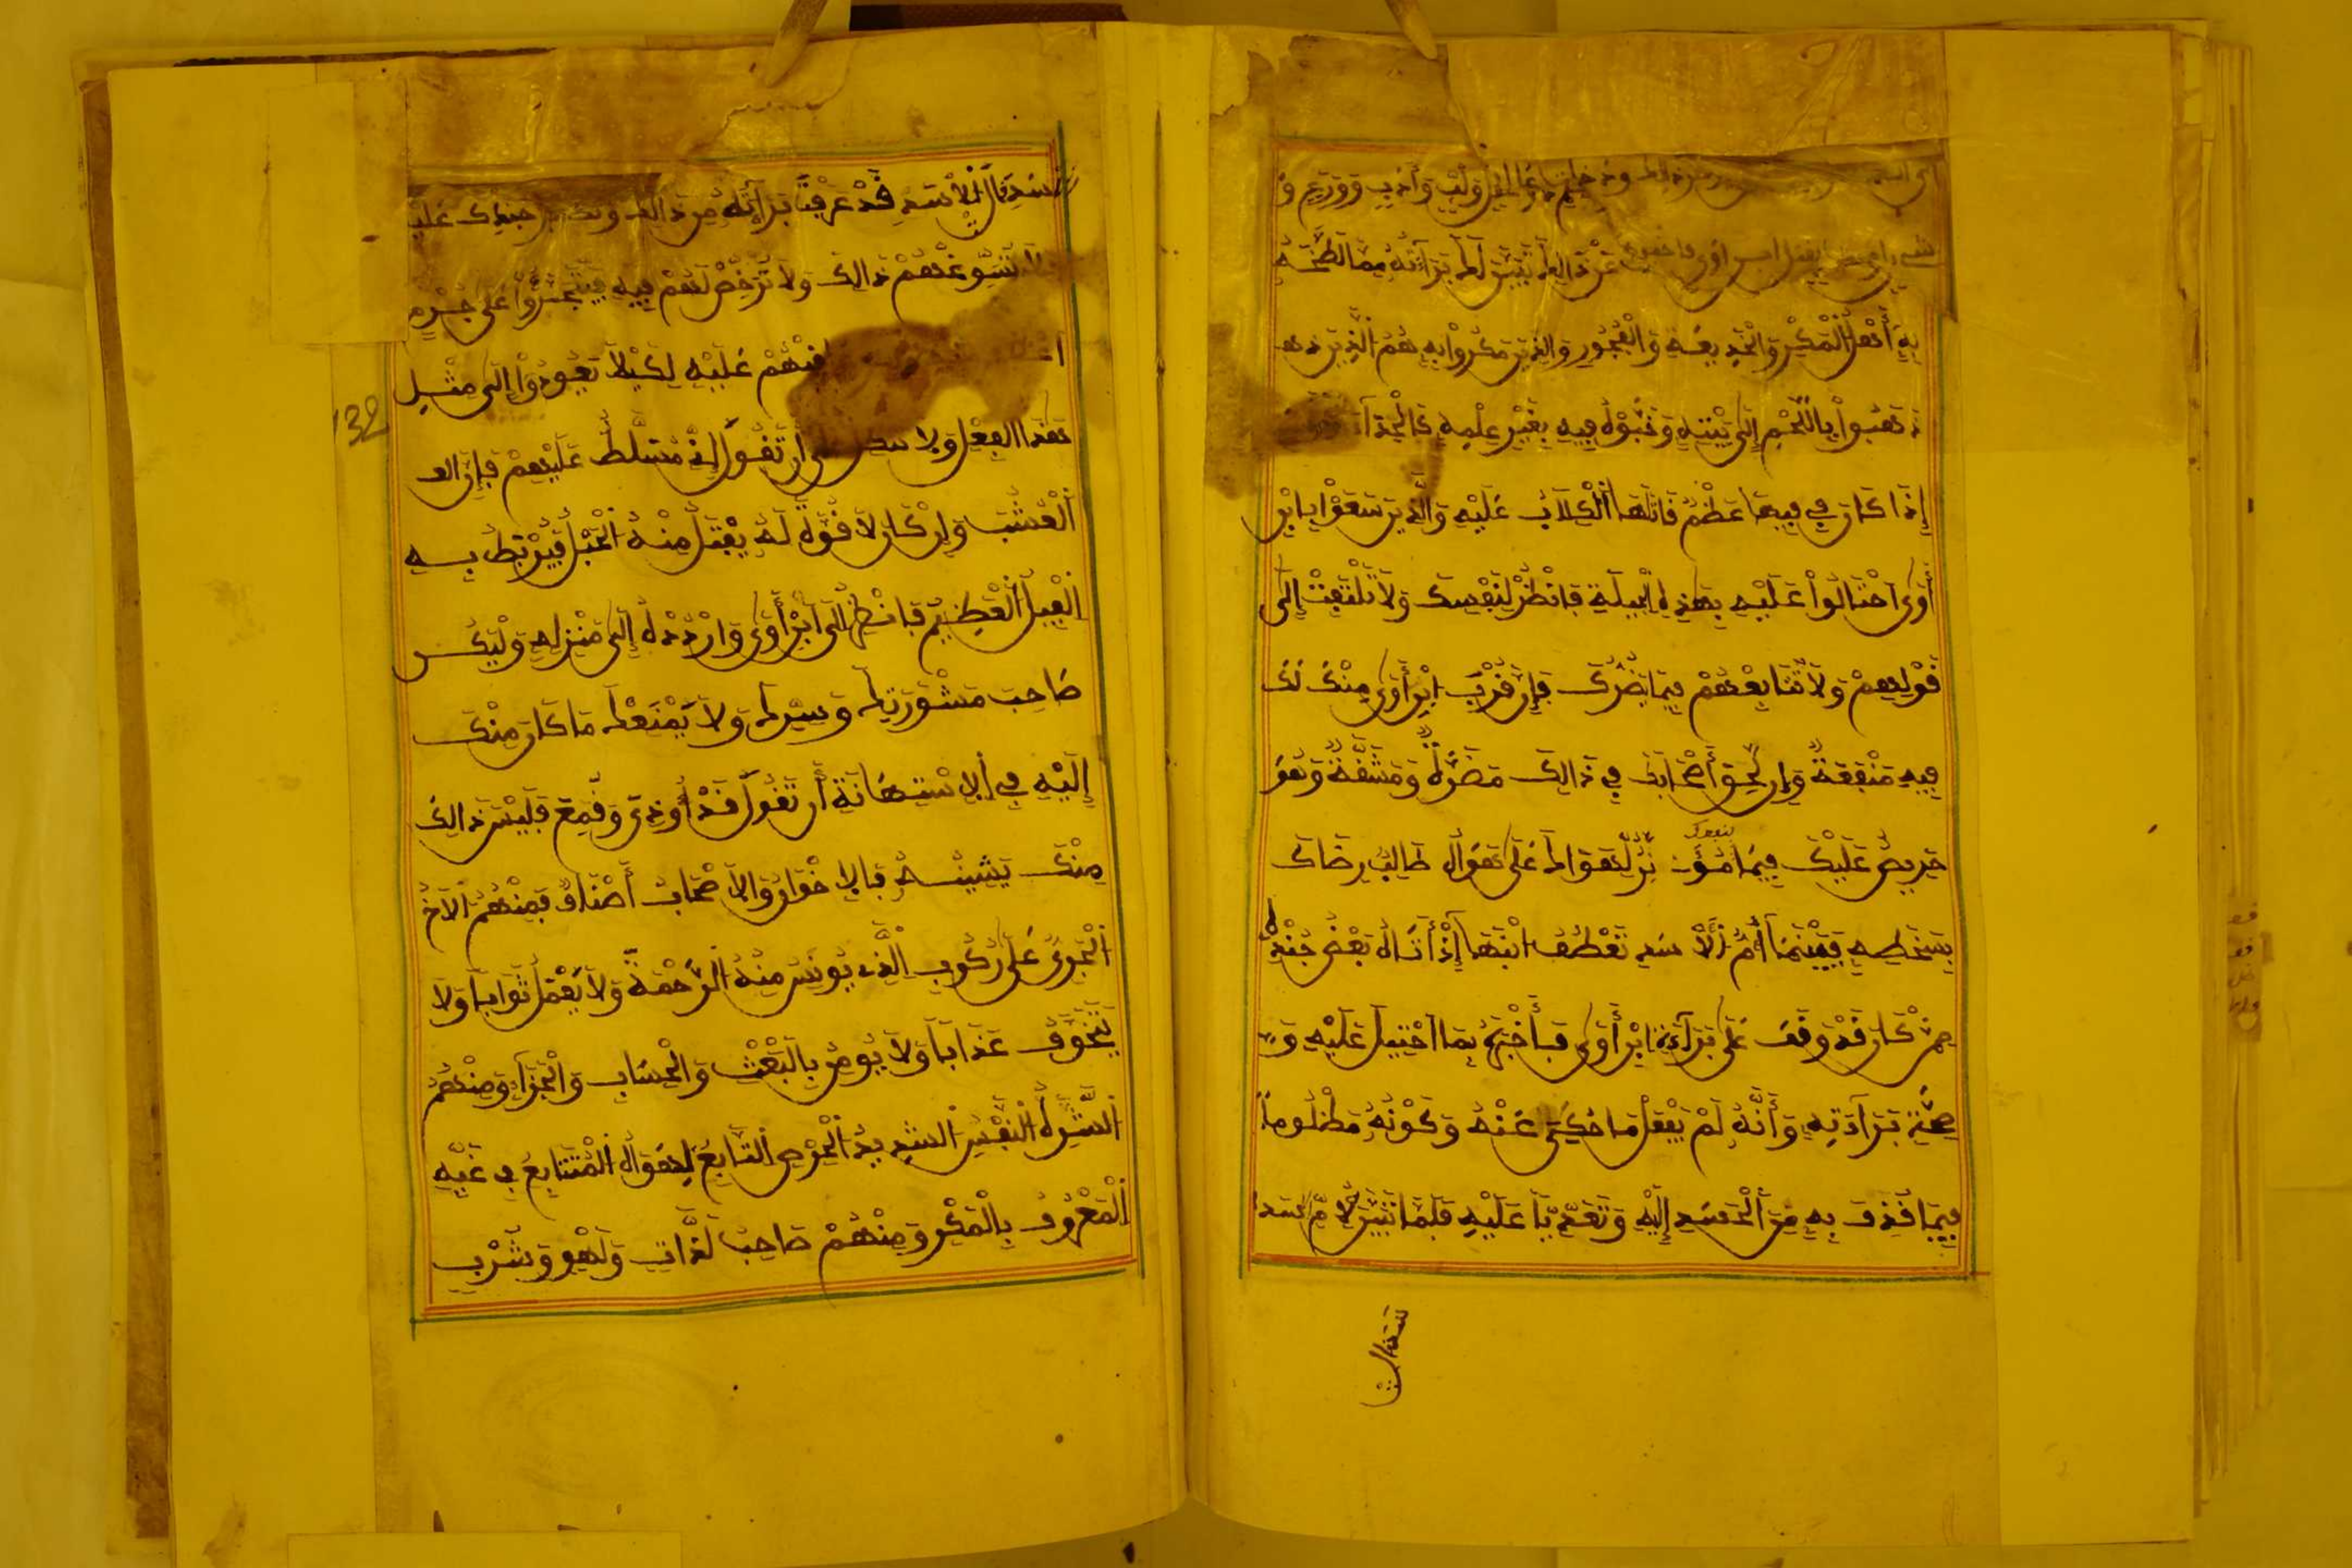 وَأَدَبٍ وَوَرَعٍ وَ
عَنْ ذَالِكَ تَبَيَّنَ لَكَ بَرَآءَتُهُ مِمَّا لَطَّخَهُ
بِهِ أَهْلُ الْمَكْرِ وَالْخَدِيعَةِ وَالْفُجُورِ وَالذِينَ مَكَرُوا بِهِ هُمُ الَّذِينَ
ذَهَبُوا بِاللَّحْمِ إِلَى بَيْتِهِ وَخَبَّوْهُ فِيهِ بِغَيْرِ عِلْمِهِ
إِذَا كَانَ فِي فِيهَا عَظْمٌ قَاتَلَهَا الْكِلَابُ عَلَيْهِ وَالَّذِينَ سَعَوْا بِابْنِ
أَوَى احْتَالُوا عَلَيْهِ بِهَذِهِ الْحِيلَةِ فَانْظُرْ لِنَفْسِكَ وَلَا تَلْتَفِتْ إِلَى
قَوْلِهِمْ وَلَا تُتَابِعْهُمْ فِيمَا يَضُرُّكَ فَإِنَّ قُرْبَ ابْنِ أَوَى مِنْكَ لَكَ
فِيهِ مَنْفَعَةٌ وَإِنْ لَحِقَ أَصْحَابَكَ فِي ذَالِكَ مَضَرَّةٌ وَمَشَقَّةٌ وَهُوَ
حَرِيصٌ عَلَيْكَ فِيمَا لِهَوَاكَ عَلَى هَوَاهُ طَالِبٌ رِضَاكَ
بِسَخَطِهِ فَبَيْنَمَا أُمُّ الْأَسَدِ تَعْطِفُ ابْنَهَا إِذْ أَتَاهُ بَعْضُ جُنْدِهِ
مِمَّنْ كَانَ قَدْ وَقَفَ عَلَى بَرَآءَةِ ابْنِ أَوَى فَأَخْبَرَهُ بِمَا احْتِيلَ عَلَيْهِ وَ
صِحَّةِ بَرَآءَتِهِ وَأَنَّهُ لَمْ يَفْعَلْ مَا حُكِيَ عَنْهُ وَكَوْنُهُ مَظْلُوماً
فِيمَا قُذِفَ بِهِ مِنَ الْحَسَدِ إِلَيْهِ وَتَعَدِّياً عَلَيْهِ فَلَمَّا تَبَيَّنَ لِأُمِّ الأَسَدِ
لْأَسَدِ قَالَتْ الأَسَدِ قَدْ عَرَفْنَا بَرَآءَتَهُ مِنْ ذَالِكَ جُنْدِكَ عَلَيْهِ
فَلَا تُسَوِّغْهُمْ ذَالِكَ وَلَا تُرَخِّصْ لَهُمْ فِيهِ فَيَتَجَسَّرُوا عَلَى جُرْمِ
مِنْهُمْ عَلَيْهِ لِكَيْلَا يَعُودُوا إِلَى مِثْلِ
هَذَا الْفِعْلِ وَلَا أَنْ تَقُولَ إِنِّي مُسَلَّطٌ عَلَيْهِمْ فَإِنَّ الع
الْعُشْبَ وَإِنْ كَانَ لَا قُوَّةَ لَهُ يُفْتَلُ مِنْهُ الْحَبْلُ فَيُرْبَطُ بِهِ
الْفِيلُ الْعَظِيمُ فَانْظُرْ إِلَى ابْنِ أَوَى وَارْدُدْهُ إِلَى مَنْزِلِهِ وَلْيَكُنْ
صَاحِبَ مَشْوَرَتِكَ وَسِرِّكَ وَلَا يَمْنَعْكَ مَا كَانَ مِنْكَ
إِلَيْهِ فِي الِاسْتِهَانَةِ أَنْ تَقُولَ قَدْ أُوذِيَ وَقُمِعَ فَلَيْسَ ذَالِكَ
مِنْكَ يَشِينُهُ فَالِاخْوَانُ وَالْأَصْحَابُ أَصْنَافٌ فَمِنْهُمُ الآخ
الْجَرِيُّ عَلَى رُكُوبِ الَّذِي يُونَسُ مِنْهُ الرَّحْمَةُ وَلَا يَعْمَلُ ثَوَاباً وَلَا
يَتَخَوَّفُ عَذَاباً وَلَا يُومِنُ بِالْبَعْثِ وَالْحِسَابِ وَالْجَزَآءِ وَمِنْهُمُ
الشَّرِهُ النَّفْسِ الشَّدِيدُ الْحِرْصِ التَّابِعُ لِهَوَاهُ الْمُتَتَابِعُ فِي غَيِّهِ
الْمَعْرُوفُ بِالْمَكْرِ وَمِنْهُمْ صَاحِبُ لَذَّاتٍ وَلَهْوٍ وَشُرْبٍ
132